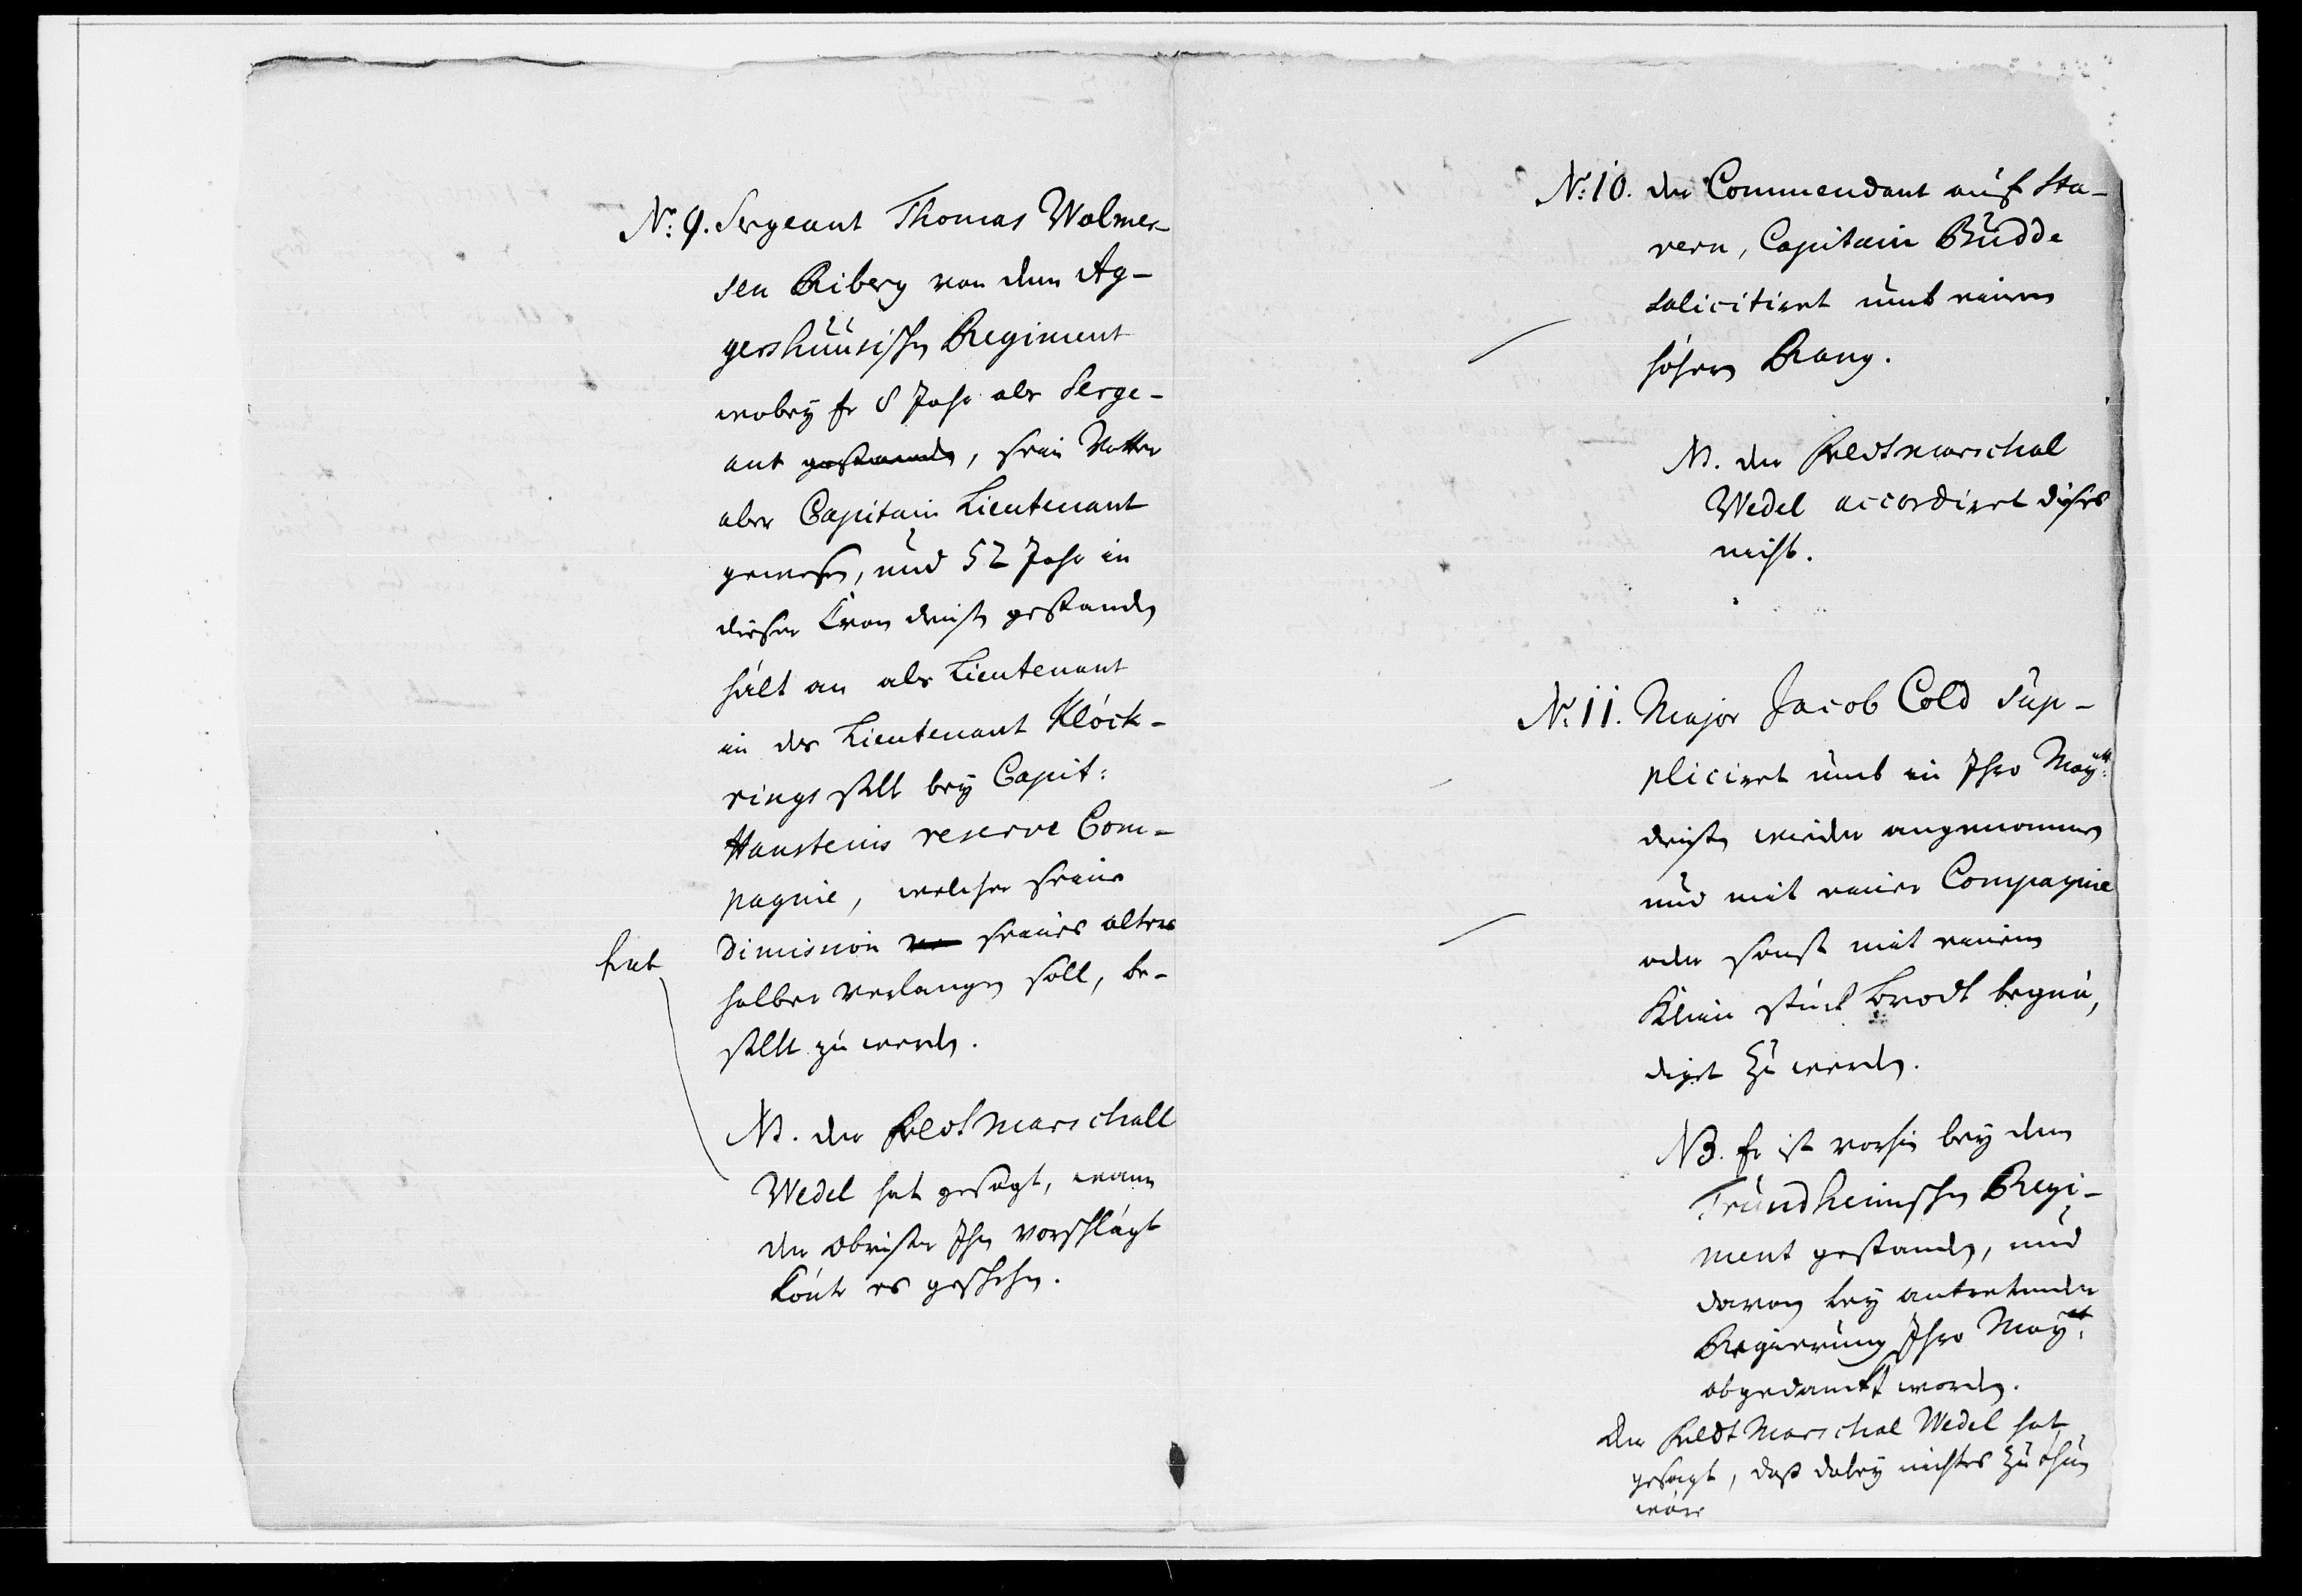 No: 9. Sergeant Thomas Wolmer-
sen Riberg von dem Ag-
gershuusischen Regiment
wobey Er 8 Jahr als Serge-
ant gestanden, sein Vatter
aber Capitain Lieutenant
gewesen, und 52 Jahr in
dieser Kron dienst gestanden
hält an als Lieutenant
in des Lieutenant Klöck-
rings stell bey Capit:
Hausteins reserve Com-
pagnie, welcher seine
Dimission seines alters
halber verlangen soll, be-
stellt zu werden.
hat
NB. der Feldtmarschall
Wedel hat gesagt, wann
der Obrister Ihn vorschlägt
könte es geschehen.
No: 10. der Commendant auf Sta-
vern, Capitain Budde
solicitiret umb einen
höhern Rang.
NB. der Feldtmarschal
Wedel accordiret dieses
nicht.
No: 11. Major Jacob Cold sup-
pliciret umb in Ihro Maytt:
dienste wieder angenommen
und mit einer Compagnie
oder sonst mit einem
Klein stück Brodt begnä,
diget zu werden.
NB. Er ist vorhin bey dem
Trundheimschen Regi-
ment gestanden, und
davon bey antretender
Regierung Ihro Mayt:
abgedanckt worden.
Der Feldt Marschal Wedel hat
gesagt, daß dabey nichtes zu thun
wäre